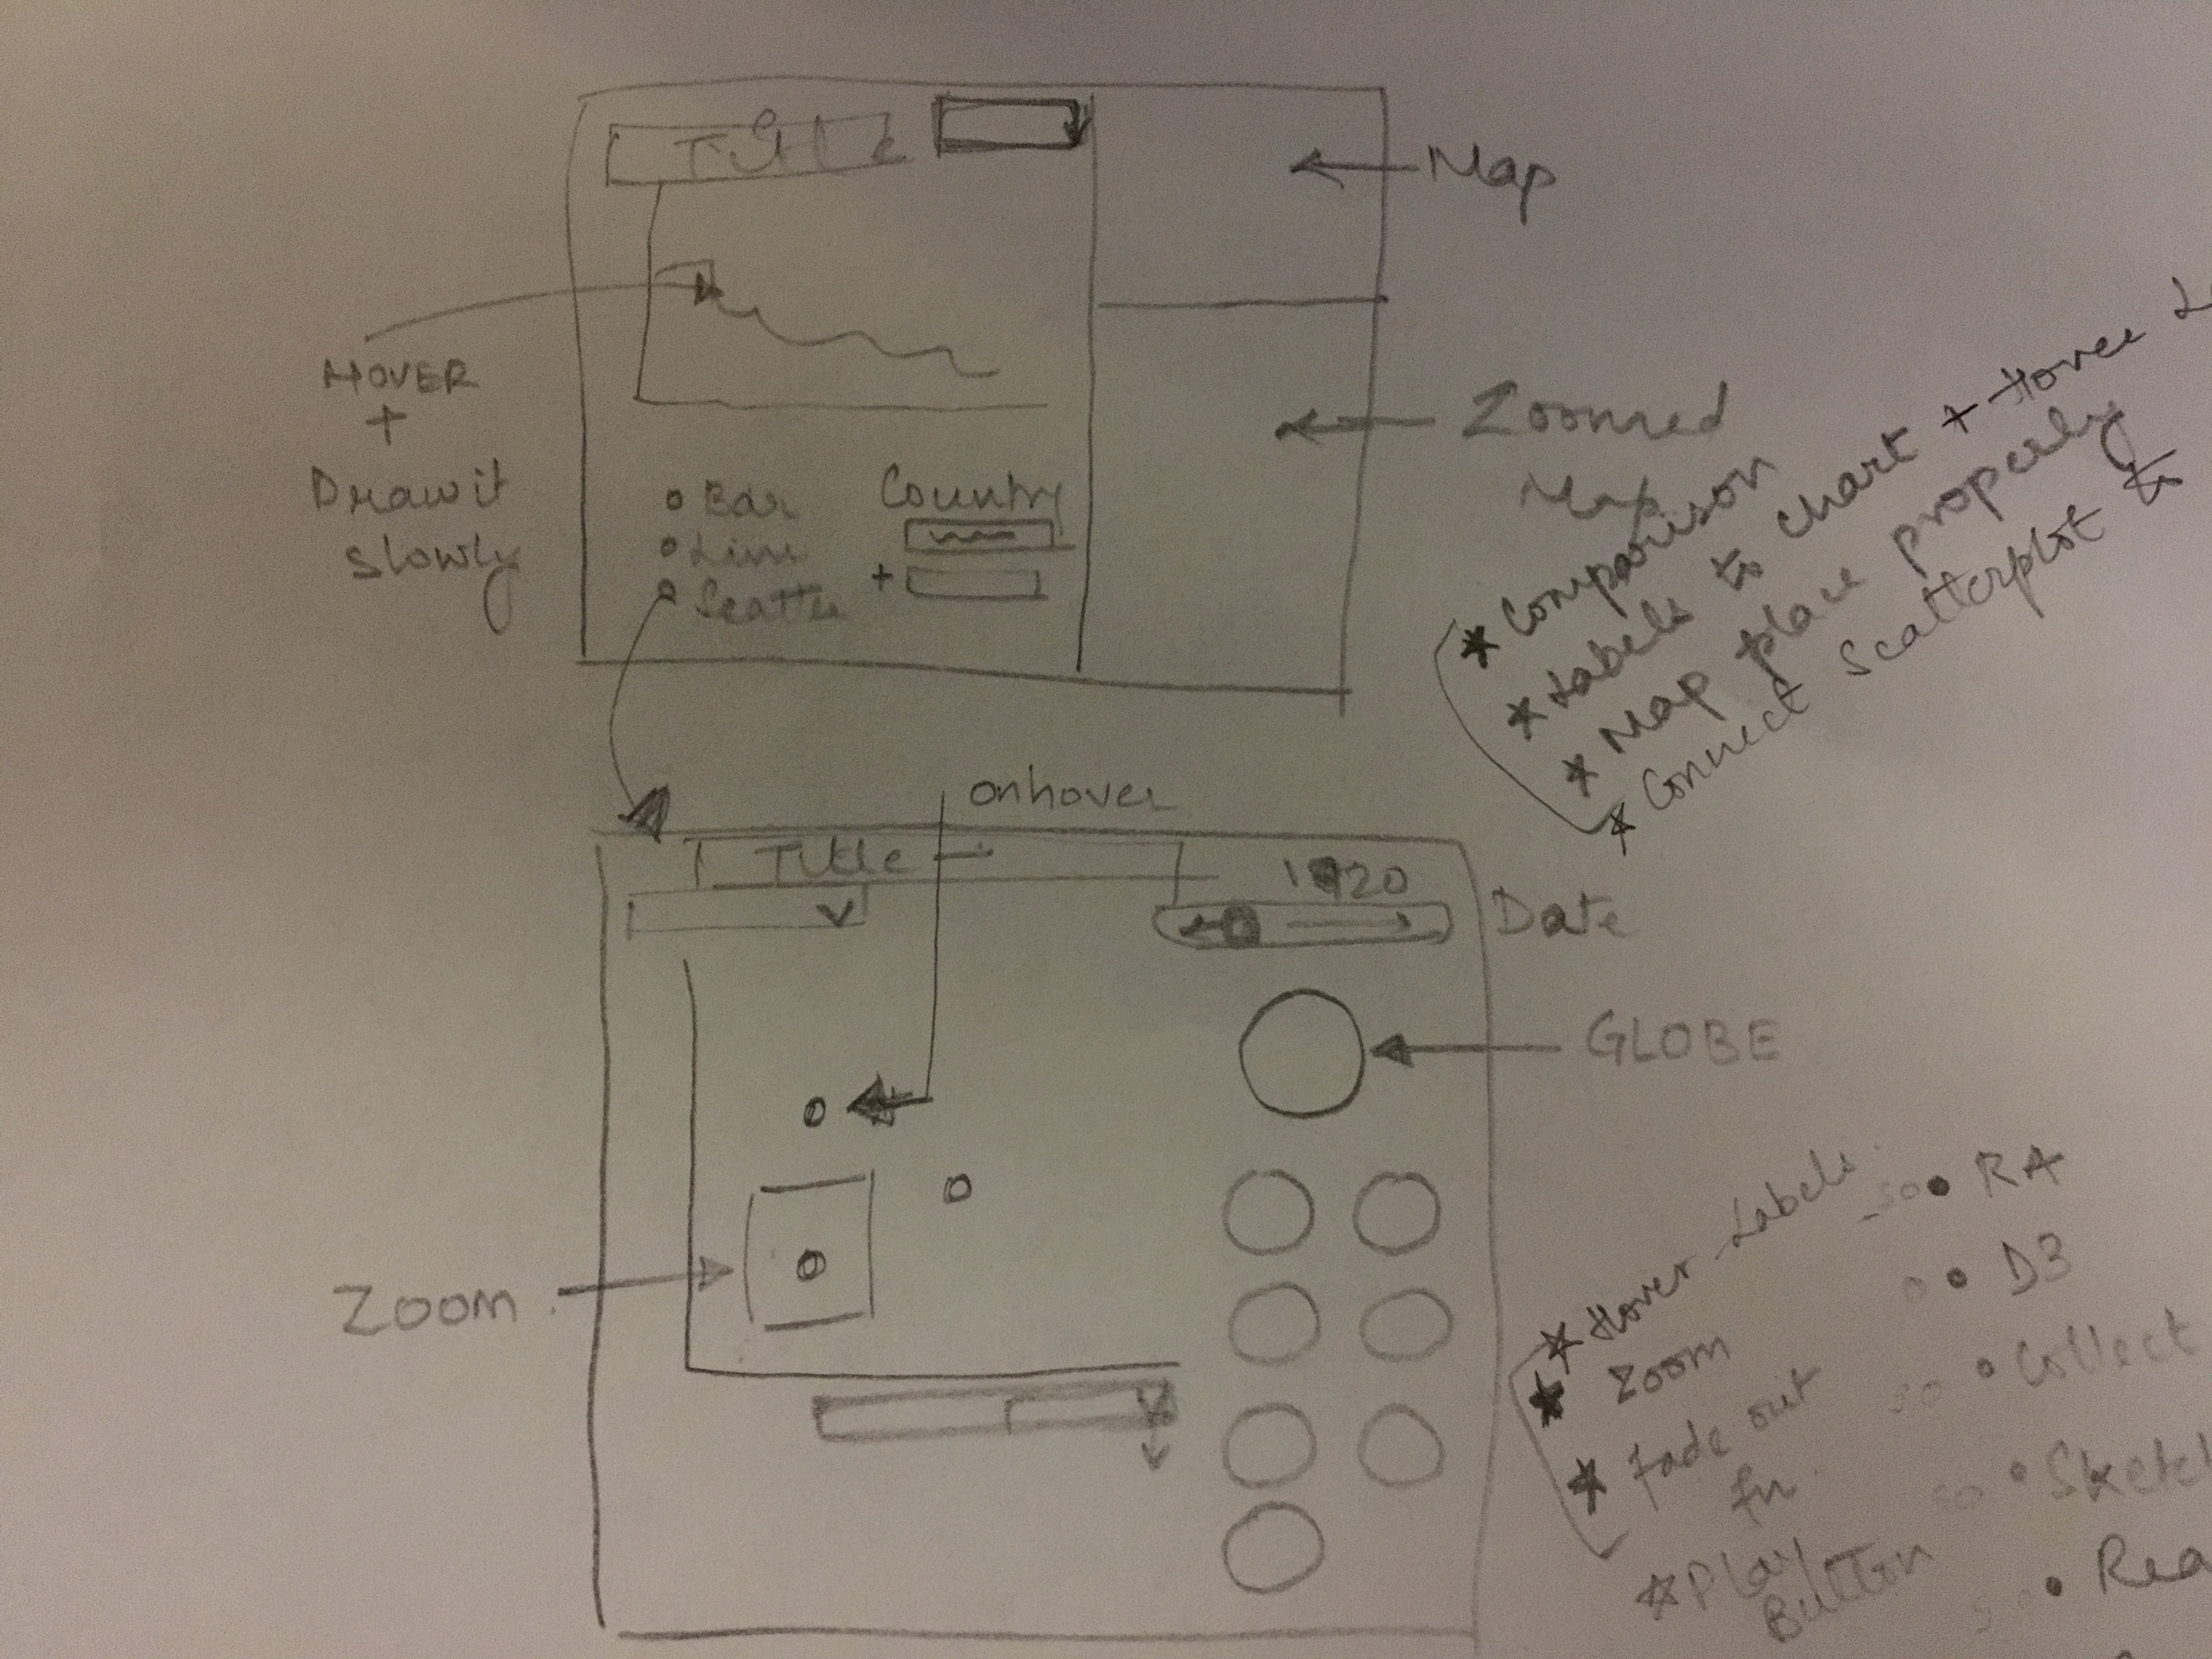 Title
Map
HOVER
+
Draw it
slowly
Zoomed
Map
Bar
Line
Scatter
Country
+
* Comparison
* Labels to chart + Hover
* Map place properly
* Connect Scatterplot to
onhover
Title
1920
Date
GLOBE
Zoom
* Hover Labels
* Zoom
* Fade out
fn
* Play
Button
• RA
• D3
• Collect